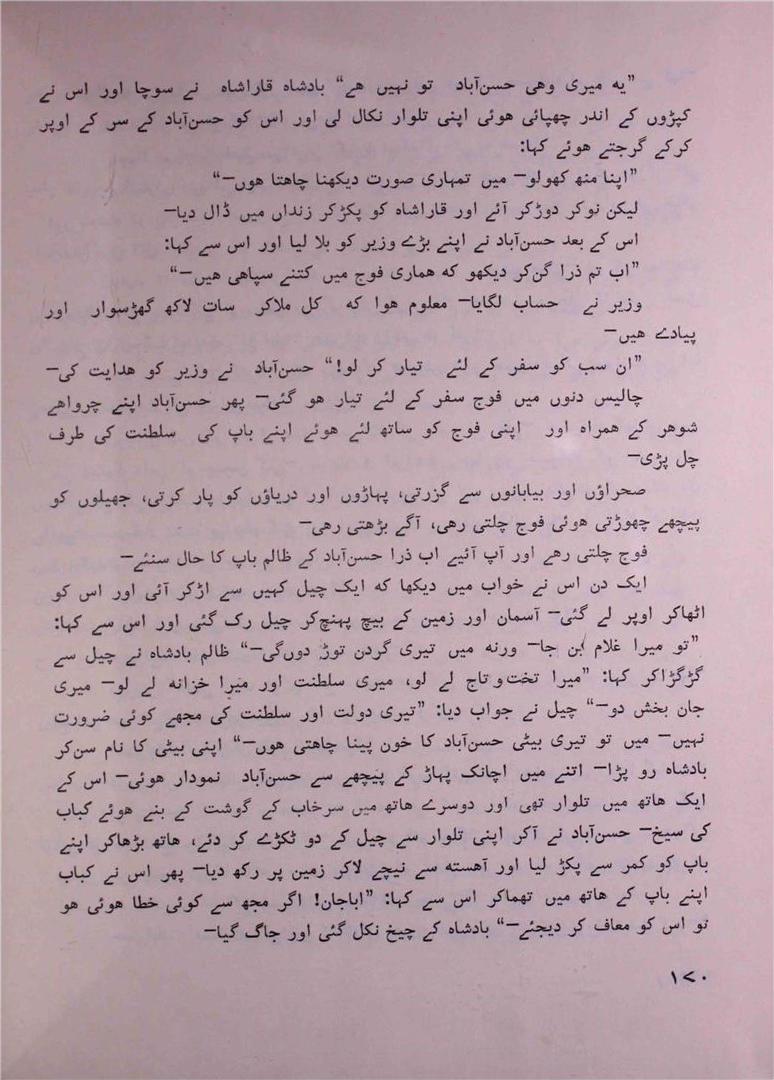 ”یه میری وهی حسن‌آباد تو نہیں هے“ بادشاہ قاراشاہ نے سوچا اور اس نے
کپڑوں کے اندر چھپائی هوئی اپنی تلوار نکال لی اور اس کو حسن‌آباد کے سر کے اوپر
کرکے گرجتے هوئے کہا:
”اپنا منھ کھولو— میں تمہاری صورت دیکھنا چاهتا هوں—“
لیکن نوکر دوڑکر آئے اور قاراشاہ کو پکڑکر زنداں میں ڈال دیا—
اس کے بعد حسن‌آباد نے اپنے بڑے وزیر کو بلا لیا اور اس سے کہا:
”اب تم ذرا گن‌کر دیکھو که هماری فوج میں کتنے سپاهی هیں—“
وزیر نے حساب لگایا— معلوم هوا که کل ملاکر سات لاکھ گھڑسوار اور
پیادے هیں—
”ان سب کو سفر کے لئے تیار کر لو!“ حسن‌آباد نے وزیر کو هدایت کی—
چالیس دنوں میں فوج سفر کے لئے تیار هو گئی— پھر حسن‌آباد اپنے چرواهے
شوهر کے همراہ اور اپنی فوج کو ساتھ لئے هوئے اپنے باپ کی سلطنت کی طرف
چل پڑی—
صحراؤں اور بیابانوں سے گزرتی، پہاڑوں اور دریاؤں کو پار کرتی، جھیلوں کو
پیچھے چھوڑتی هوئی فوج چلتی رهی، آگے بڑھتی رهی—
فوج چلتی رهے اور آپ آئیے اب ذرا حسن‌آباد کے ظالم باپ کا حال سنئے—
ایک دن اس نے خواب میں دیکھا که ایک چیل کہیں سے اڑکر آئی اور اس کو
اٹھاکر اوپر لے گئی— آسمان اور زمین کے بیچ پہنچ‌کر چیل رک گئی اور اس سے کہا:
”تو میرا غلام بن جا— ورنه میں تیری گردن توڑ دوں‌گی—“ ظالم بادشاہ نے چیل سے
گڑگڑاکر کہا: ”میرا تخت‌و‌تاج لے لو، میری سلطنت اور میرا خزانه لے لو— میری
جان بخش دو—“ چیل نے جواب دیا: ”تیری دولت اور سلطنت کی مجھے کوئی ضرورت
نہیں— میں تو تیری بیٹی حسن‌آباد کا خون پینا چاهتی هوں—“ اپنی بیٹی کا نام سن‌کر
بادشاہ رو پڑا— اتنے میں اچانک پہاڑ کے پیچھے سے حسن‌آباد نمودار هوئی— اس کے
ایک هاتھ میں تلوار تھی اور دوسرے هاتھ میں سرخاب کے گوشت کے بنے هوئے کباب
کی سیخ— حسن‌آباد نے آکر اپنی تلوار سے چیل کے دو ٹکڑے کر دئے، هاتھ بڑھاکر اپنے
باپ کو کمر سے پکڑ لیا اور آهسته سے نیچے لاکر زمین پر رکھ دیا— پھر اس نے کباب
اپنے باپ کے هاتھ میں تھماکر اس سے کہا: ”اباجان! اگر مجھ سے کوئی خطا هوئی هو
تو اس کو معاف کر دیجئے—“ بادشاہ کے چیخ نکل گئی اور جاگ گیا—
۱۷۰